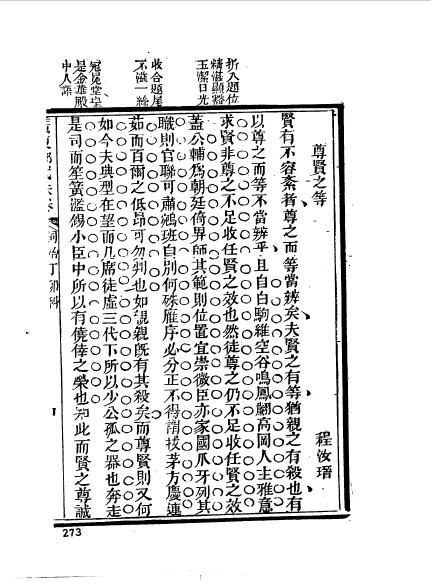 折入題位
精湛顯豁
玉潔日光
收合題尾
不溢一絲
冠冕堂皇
是金華殿
中人語
尊賢之等
程汝
賢有不容紊者尊之而等當辨矣夫賢之有等猶親之有殺也有
以尊之而等不當辨乎且自白駒維空谷鳴鳳翽高岡人主雅意
求賢非尊之不足收任賢之效也然徒尊之仍不足收任賢之效
蓋公輔爲朝廷倚畀師其範則位置宜崇微臣亦家國爪牙列其
職則官聯可肅鵷班自別何殊雁序必分正不得謂拔茅方慶連
茹而百爾之低昂可勿判也如親親既有其殺矣而尊賢則又何
如今夫典型在望而几席徒虛三代下所以少公孤之器也奔走
是司而笙簧濫錫小臣中所以有僥倖之榮也知此而賢之尊誠
同治丁卯科
273